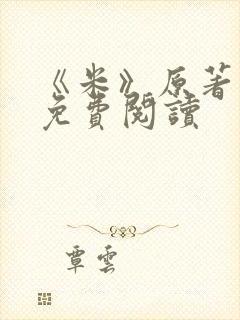 《米》原著
免費閱讀
覃雲